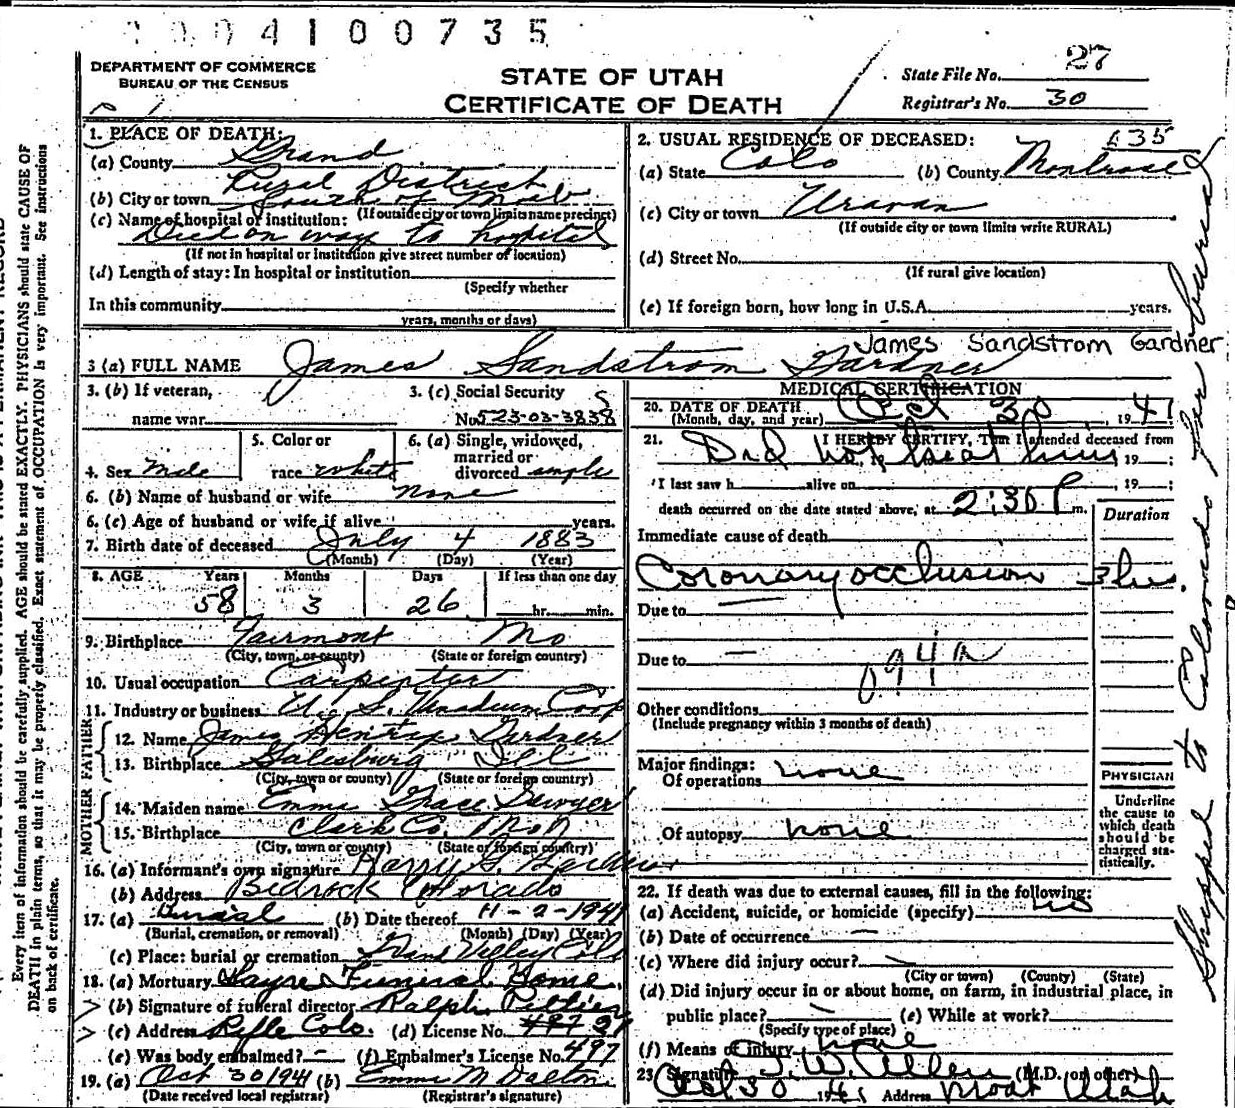 0004100735
DEPARTMENT OF COMMERCE
BUREAU OF THE CENSUS
STATE OF UTAH
CERTIFICATE OF DEATH
State File No. 27
Registrar's No. 30
1. PLACE OF DEATH:
(a) County Grand
Rural District
(b) City or town South of Moab
(If outside city or town limits name precinct)
(c) Name of hospital or institution:
Died on way to hospital
(If not in hospital or institution give street number of location)
(d) Length of stay: In hospital or institution
(Specify whether
In this community
years, months or days)
2. USUAL RESIDENCE OF DECEASED: 635
(a) State Colo (b) County Montrose
(c) City or town Uravan
(If outside city or town limits write RURAL)
(d) Street No.
(If rural give location)
(e) If foreign born, how long in U.S.A. years.
James Sandstrom Gardner
3 (a) FULL NAME James Sandstrom Gardner
3. (b) If veteran,
name war
3. (c) Social Security
No. 523-03-3838
4. Sex Male
5. Color or
race White
6. (a) Single, widowed,
married or
divorced single
6. (b) Name of husband or wife none
6. (c) Age of husband or wife if alive years.
7. Birth date of deceased July 4 1883
(Month) (Day) (Year)
8. AGE Years Months Days If less than one day
58 3 26 hr. min.
9. Birthplace Fairmont Mo
(City, town, or county) (State or foreign country)
10. Usual occupation Carpenter
11. Industry or business U.S. Vanadium Corp
FATHER
12. Name James Gardner
13. Birthplace Galesburg Ill
(City, town or county) (State or foreign country)
MOTHER
14. Maiden name Emma Grace Sawyer
15. Birthplace Clark Co. Mo
(City, town or county) (State or foreign country)
16. (a) Informant's own signature Harry S. Gardner
(b) Address Bedrock Colorado
17. (a) Burial (b) Date thereof 11-2-1941
(Burial, cremation, or removal) (Month) (Day) (Year)
(c) Place: burial or cremation Grand Valley Colo
18. (a) Mortuary Sayre Funeral Home.
(b) Signature of funeral director Ralph
(c) Address Rifle Colo. (d) License No.
(e) Was body embalmed? - (f) Embalmer's License No. 497
19. (a) Oct 30 1941 (b) Emma M Dalton.
(Date received local registrar) (Registrar's signature)
MEDICAL CERTIFICATION
20. DATE OF DEATH
(Month, day, and year) Oct 30, 1941
21. I HEREBY CERTIFY, That I attended deceased from
Did not treat him 19 ;
I last saw h alive on , 19 ;
death occurred on the date stated above, at 2:30 P m.
Duration
Immediate cause of death
Coronary occlusion 3 hrs.
Due to —
Due to —
094a
Other conditions
(Include pregnancy within 3 months of death)
Major findings:
Of operations none
Of autopsy none
PHYSICIAN
Underline
the cause to
which death
should be
charged sta-
tistically.
22. If death was due to external causes, fill in the following:
(a) Accident, suicide, or homicide (specify) no
(b) Date of occurrence —
(c) Where did injury occur?
(City or town) (County) (State)
(d) Did injury occur in or about home, on farm, in industrial place, in
public place? (e) While at work?
(Specify type of place)
(f) Means of injury none
23 Signature J. W. Allen (M.D. or other)
Oct 30 19 Address Moab Utah
Shipped to Colorado for burial
Every item of information should be carefully supplied. AGE should be stated EXACTLY. PHYSICIANS should state CAUSE OF
DEATH in plain terms, so that it may be properly classified. Exact statement of OCCUPATION is very important. See instructions
on back of certificate.